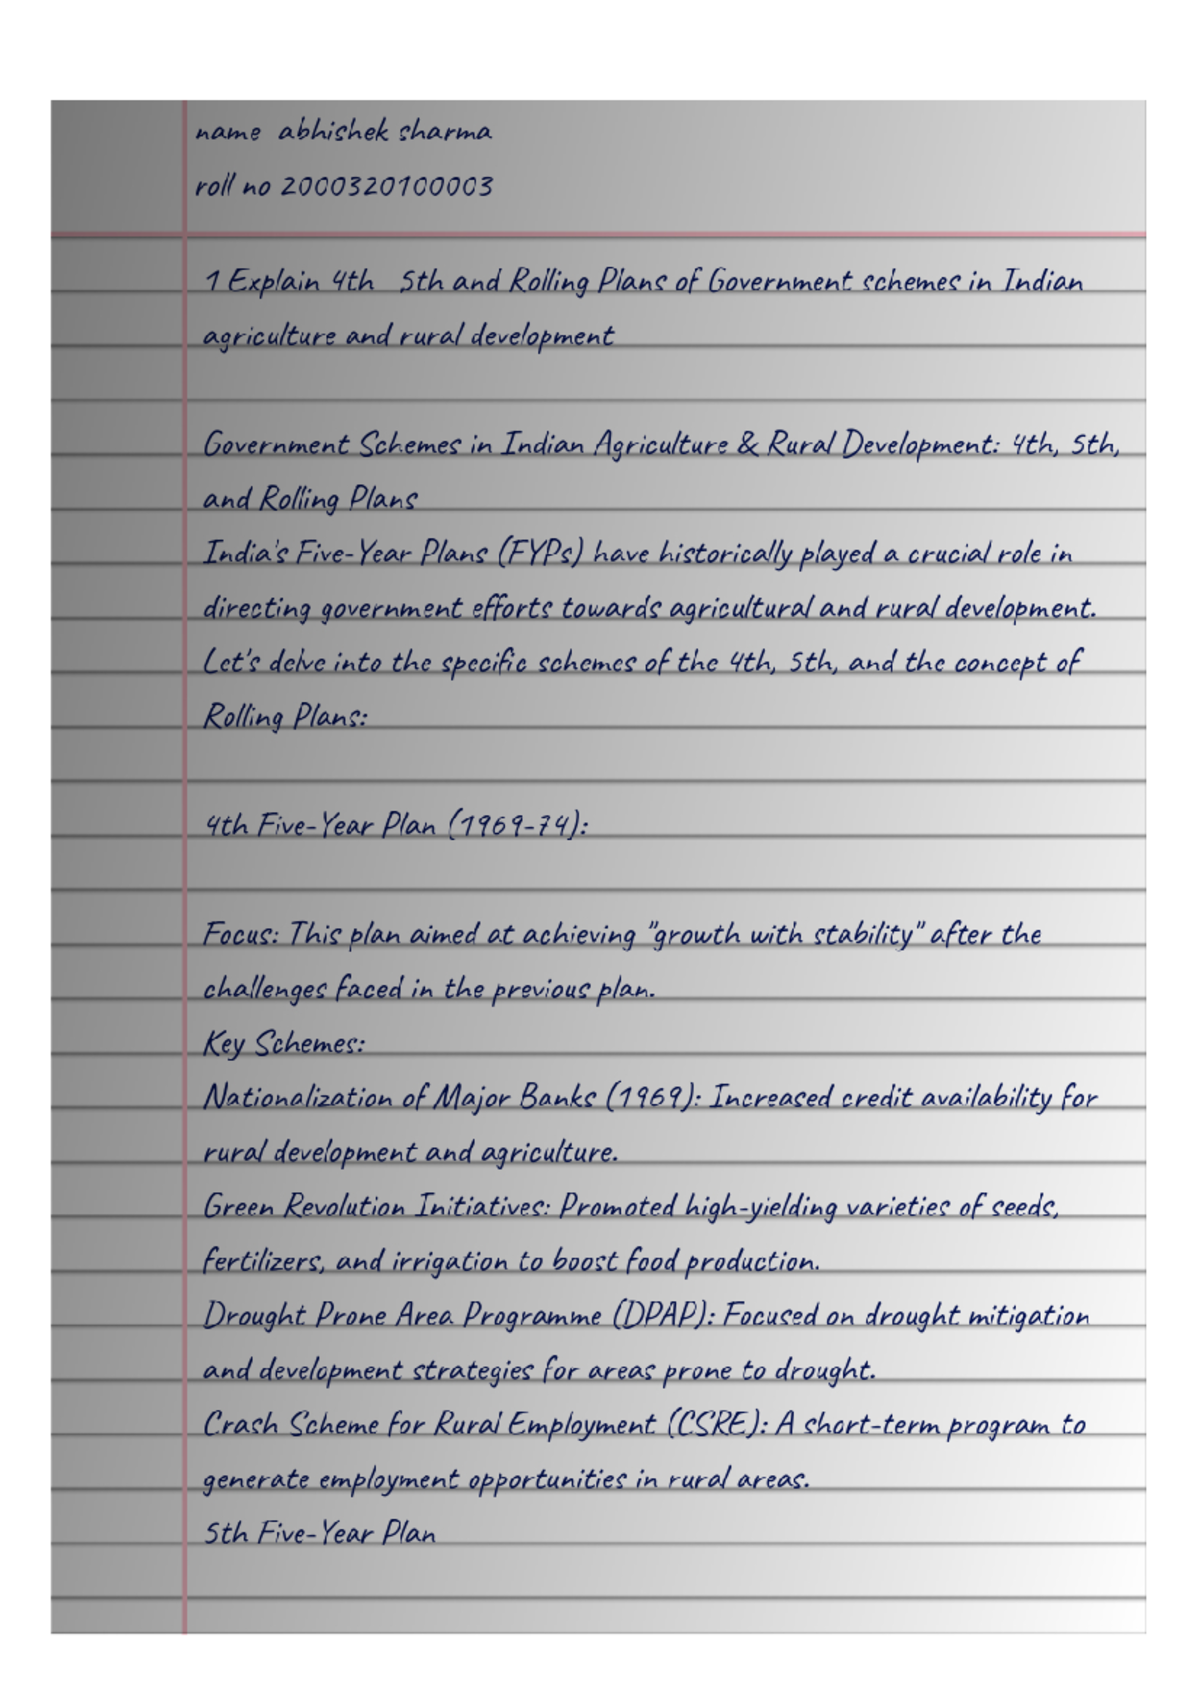 name abhishek sharma
roll no 2000320100003
1 Explain 4th 5th and Rolling Plans of Government schemes in Indian
agriculture and rural development
Government Schemes in Indian Agriculture & Rural Development: 4th, 5th,
and Rolling Plans
India's Five-Year Plans (FYPs) have historically played a crucial role in
directing government efforts towards agricultural and rural development.
Let's delve into the specific schemes of the 4th, 5th, and the concept of
Rolling Plans:
4th Five-Year Plan (1969-74):
Focus: This plan aimed at achieving "growth with stability" after the
challenges faced in the previous plan.
Key Schemes:
Nationalization of Major Banks (1969): Increased credit availability for
rural development and agriculture.
Green Revolution Initiatives: Promoted high-yielding varieties of seeds,
fertilizers, and irrigation to boost food production.
Drought Prone Area Programme (DPAP): Focused on drought mitigation
and development strategies for areas prone to drought.
Crash Scheme for Rural Employment (CSRE): A short-term program to
generate employment opportunities in rural areas.
5th Five-Year Plan